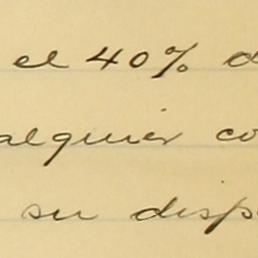 el 40% d
alquier co
su disp